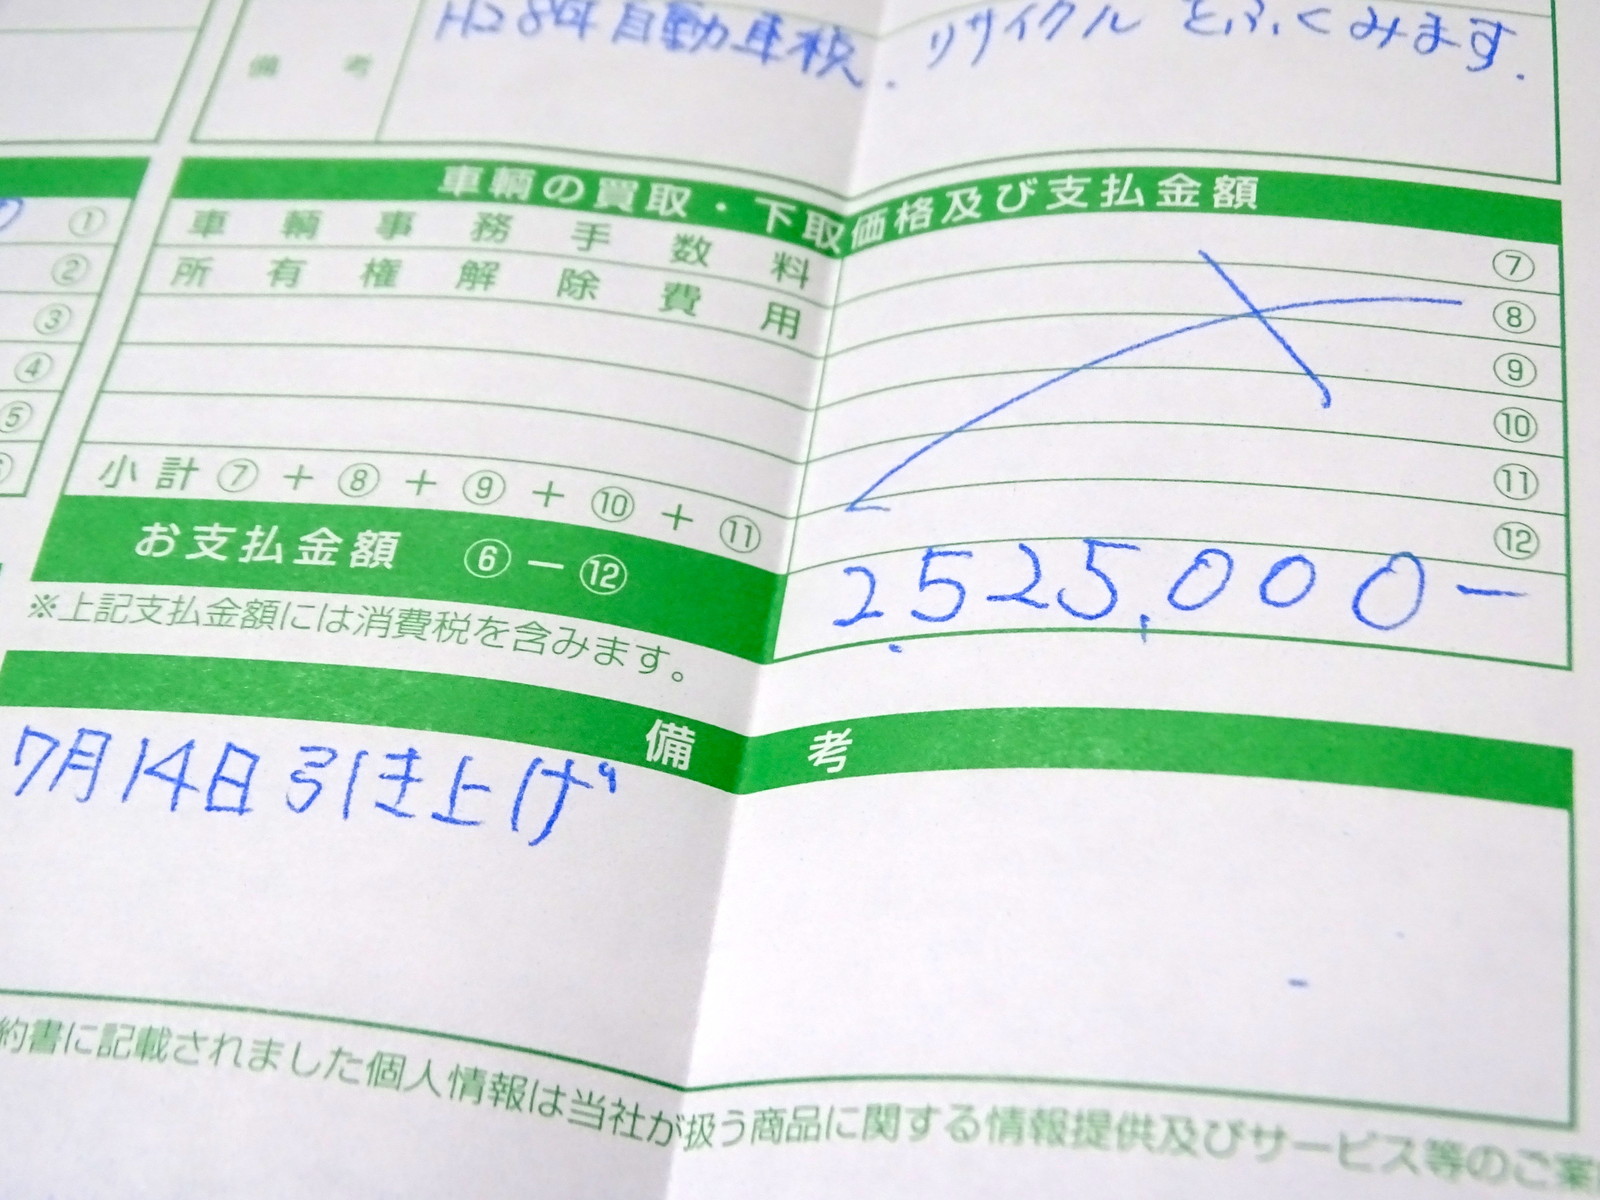 H28年自動車税.リサイクルをふくみます.
備考
車輌の買取・下取価格及び支払金額
①
車輌事務手数料 ⑦
②
所有権解除費用 ⑧
③
⑨
④
⑩
⑤
⑪
小計⑦+⑧+⑨+⑩+⑪ ⑫
お支払金額 ⑥-⑫ 2,525,000-
※上記支払金額には消費税を含みます。
備考
7月14日引き上げ
約書に記載されました個人情報は当社が扱う商品に関する情報提供及びサービス等のご案